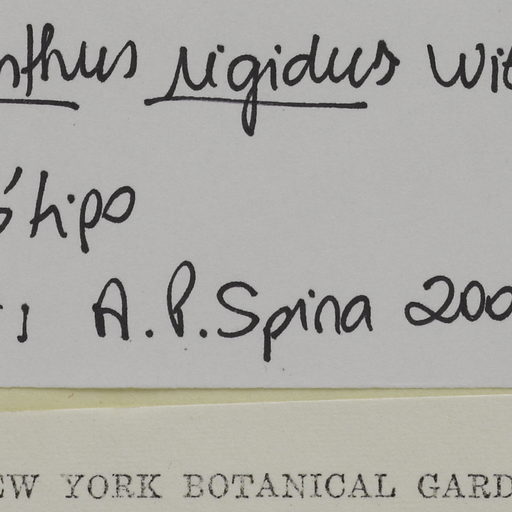 nthus rigidus Wit
ótipo
: A.P. Spina 200
EW YORK BOTANICAL GARD